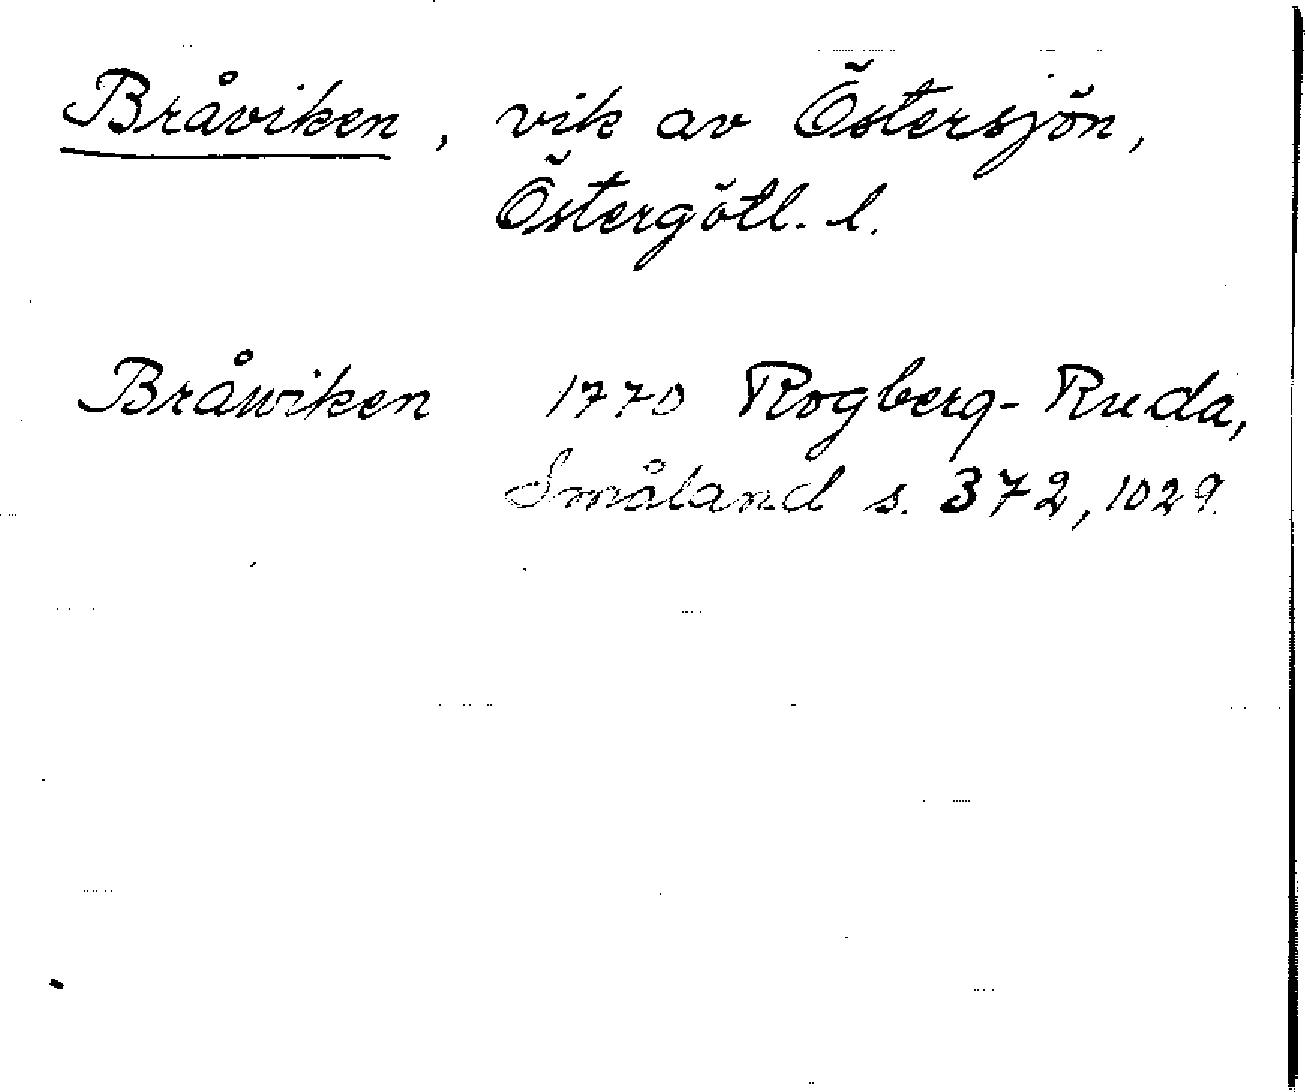 Bråviken, vik av Östersjön,
Östergötl. l.
Bråwiken 1770 Rogberg-Ruda,
Småland s. 372, 1029.